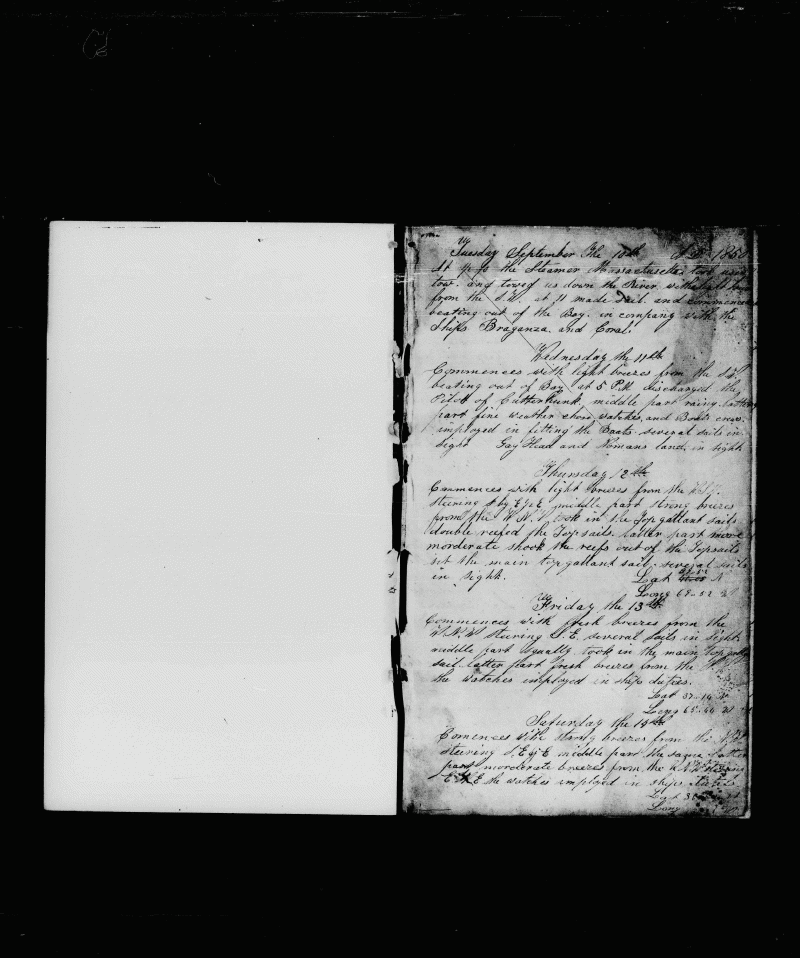 Tuesday September the 10th A.D. 1850
At 9 the Steamer Massachusetts took us in
tow. and towed us down the River with light
from the S.W. at 11 made sail and commenced
beating out of the Bay. in company with the
Ships Braganza and Coral.
Wednesday the 11th
Commences with light breezes from the S.W.
beating out of Bay at 5 PM discharged the
Pilot of Cutterhunk middle part rainy latter
part fine weather chose watches and Boats crew
imployed in fitting the Boats several sails in
sight Gay Head and Nomans land in sight
Thursday 12th
Commences with light breezes from the
steering S by E middle part strong breezes
from the W.N.W took in the top gallant sails
double reefed the Topsails. latter part more
morderate shook the reefs out of the Topsails
set the main top gallant sail. several sails
in sight. Lat N
Long 69-52 W
Friday the 13th
Commences with fresh breezes from the
W.N.W steering S.E. several sails in sight
middle part squally took in the main top gallant
sail latter part fresh breezes from the
the watches imployed in ships duties.
Lat 37-14 N
Long 65-40 W
Saturday the 14th
Comences with strong breezes from the
steering middle part the same latter
part morderate breezes from the
the watches imployed in ships duties
Lat
Long